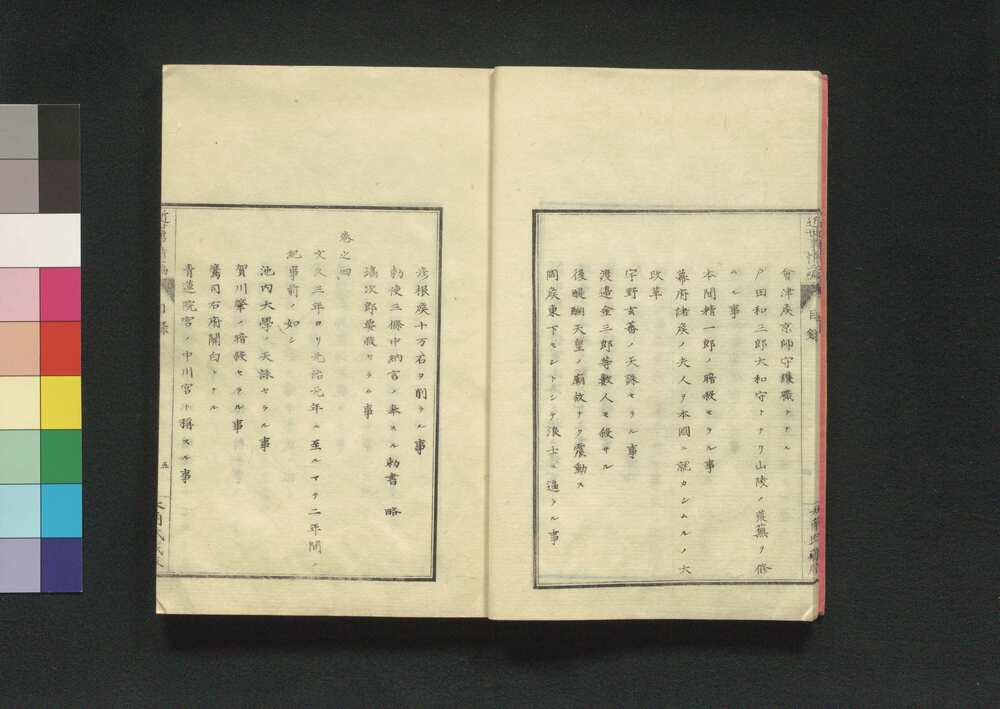 會津侯京師守護職トナル
戸田和三郎大和守トナリ山陵ノ荒蕪ヲ修
スル事
本間精一郎ノ暗殺セラル事
幕府諸侯ノ夫人ヲ本國ニ就カシムルノ大
改革
宇野玄蕃ノ天誅セラル事
渡邉金三郎等數人モ殺サル
後醍醐天皇ノ廟故ナク震動ス
岡侯東下セントシテ浪士ニ逼ラル事
目錄
彦根侯十万石ヲ削ラル事
勅使三條中納言ノ奉スル勅書ノ略
塙次郎要殺セラル事
卷之四
文久三年ヨリ元治元年ニ至ルマテ二年間ノ
紀事前ノ如シ
池内大學ノ天誅セラル事
賀川肇ノ暗殺セラル事
鷹司右府關白トナル
青蓮院宮ノ中川宮ト稱スル事
目錄
五